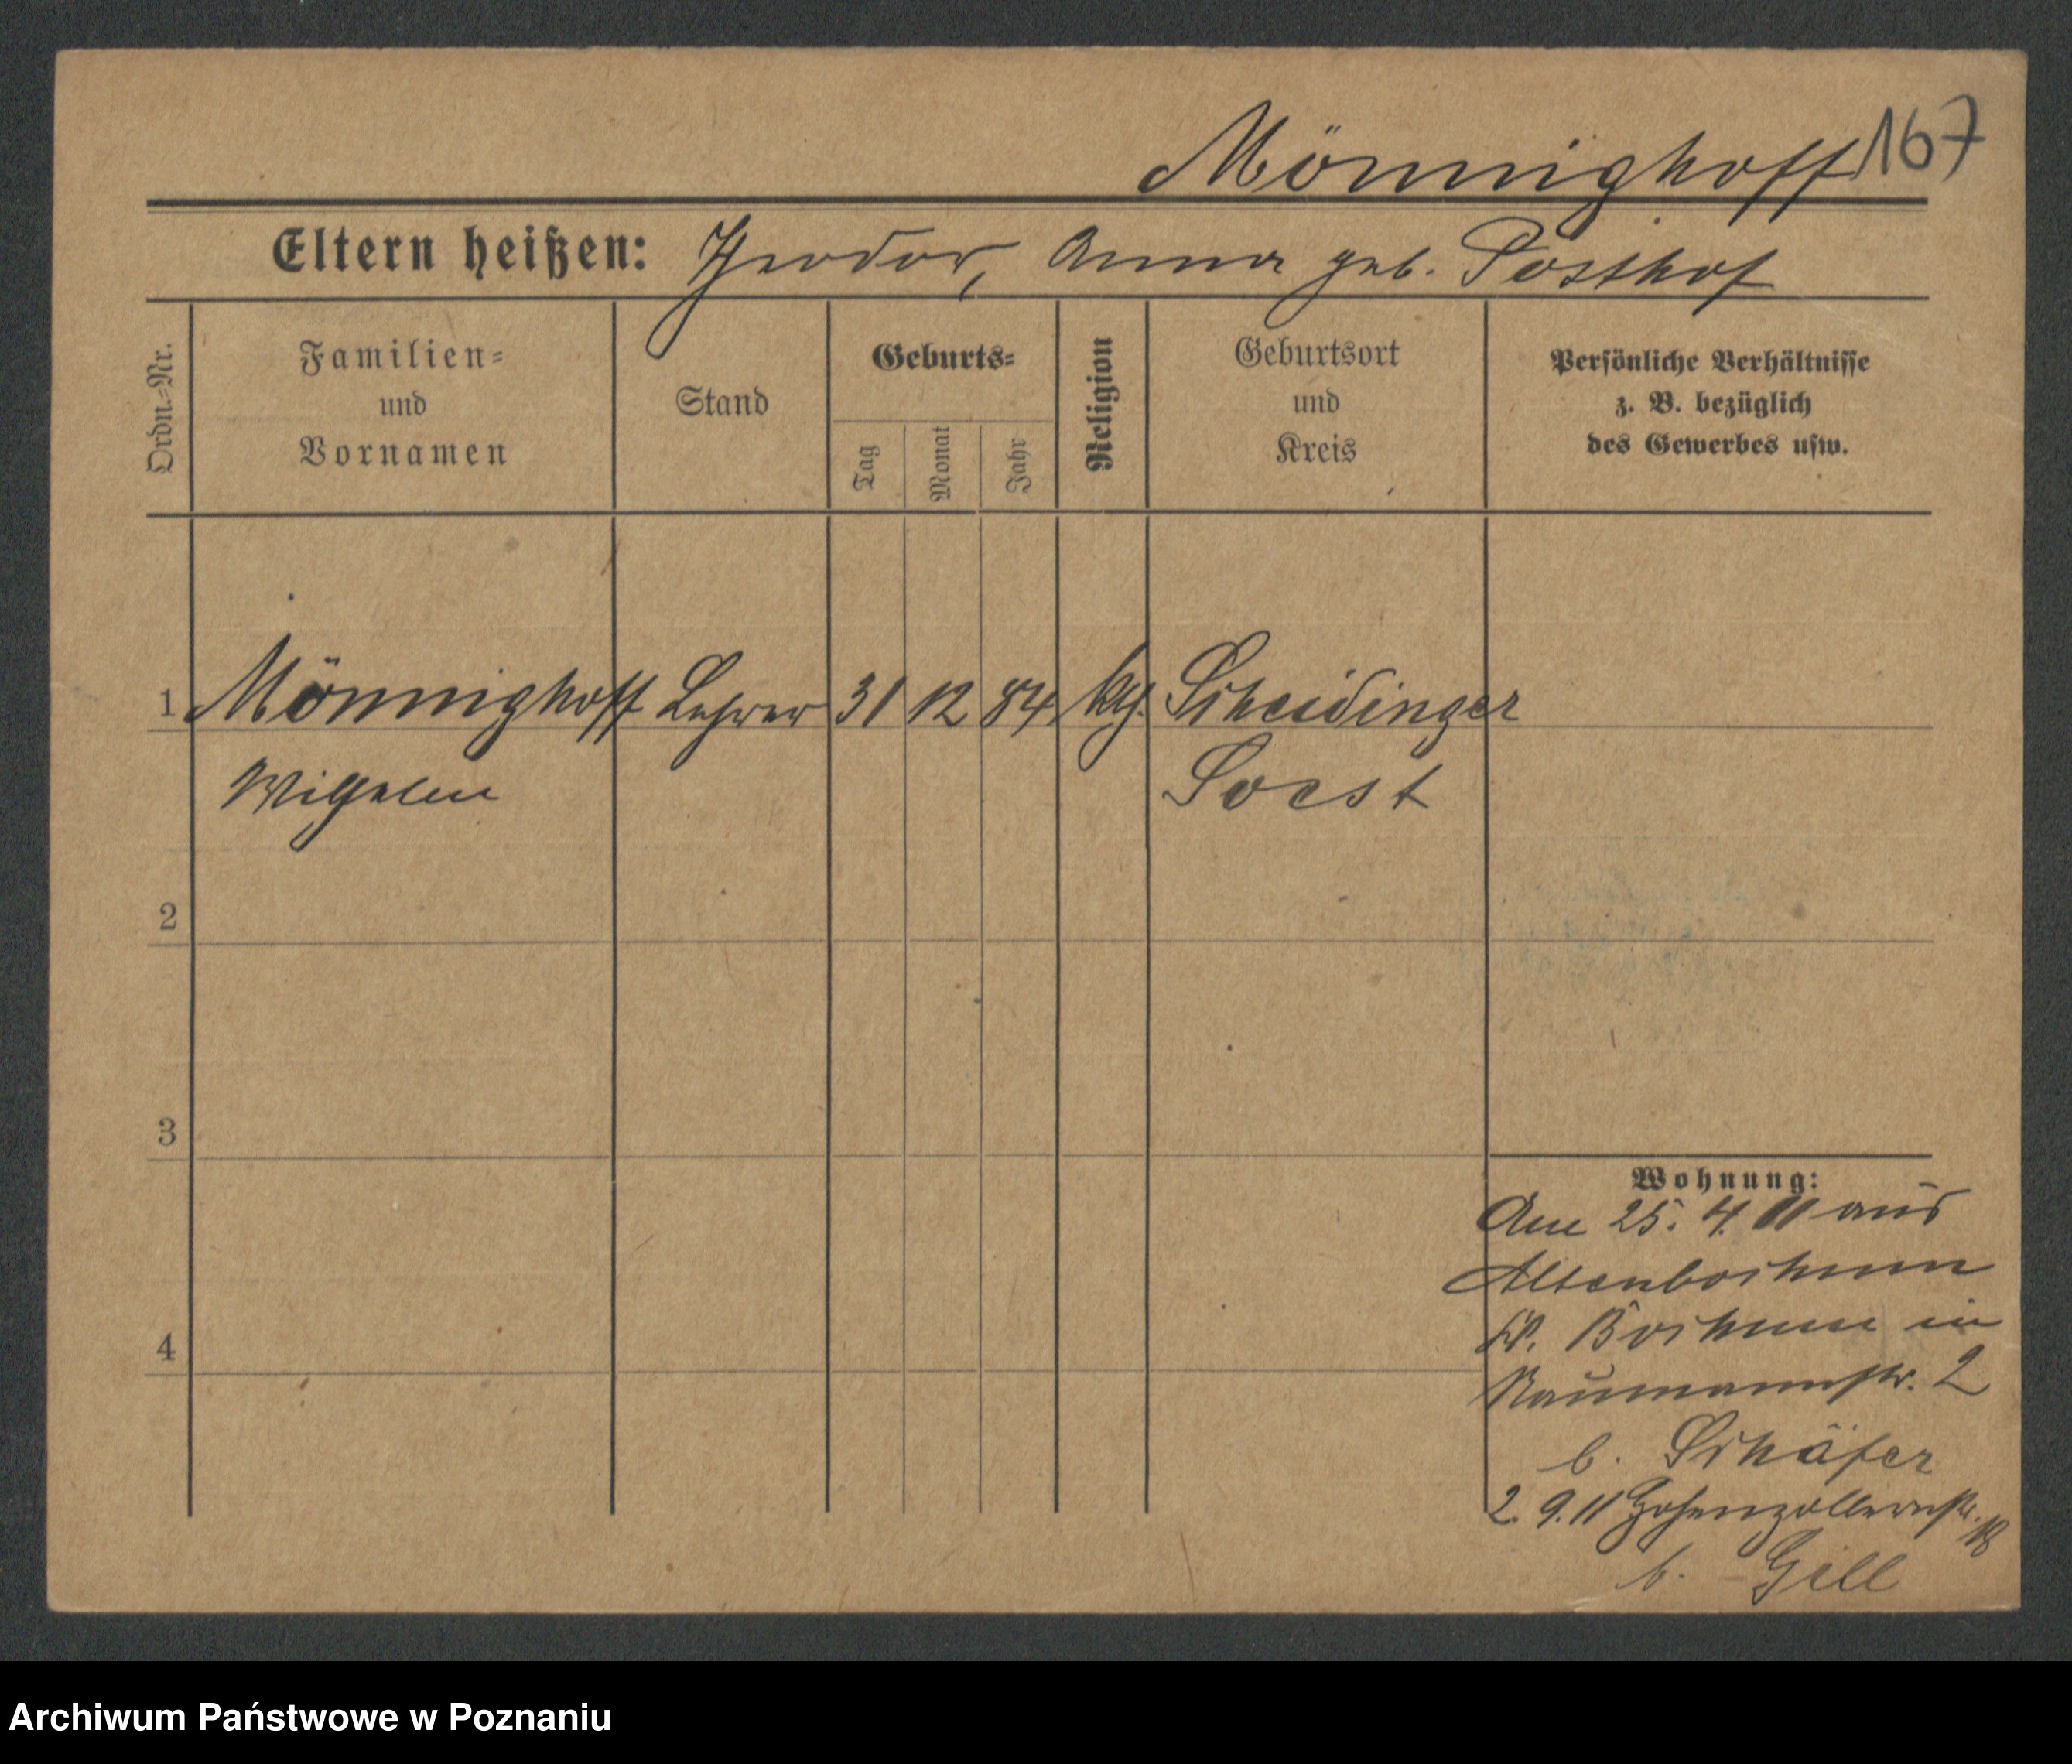 Mönnighoff 167
Eltern heißen: Theodor, Anna geb. Posthof
Ordn.-Nr.
Familien-
und
Vornamen
Stand
Geburts-
Tag
Monat
Jahr
Religion
Geburtsort
und
Kreis
Persönliche Verhältnisse
z. B. bezüglich
des Gewerbes usw.
1 Mönnighoff Lehrer 31 12 84 kth. Scheidinger
Wilhelm Soest
2
3
4
Wohnung:
Am 25. 4. 11 aus
Altenbochum
Kr. Bochum in
Naumannstr. 2
b. Schäfer
2. 9. 11 Hohenzollernstr. 18
b. Gill
Archiwum Państwowe w Poznaniu